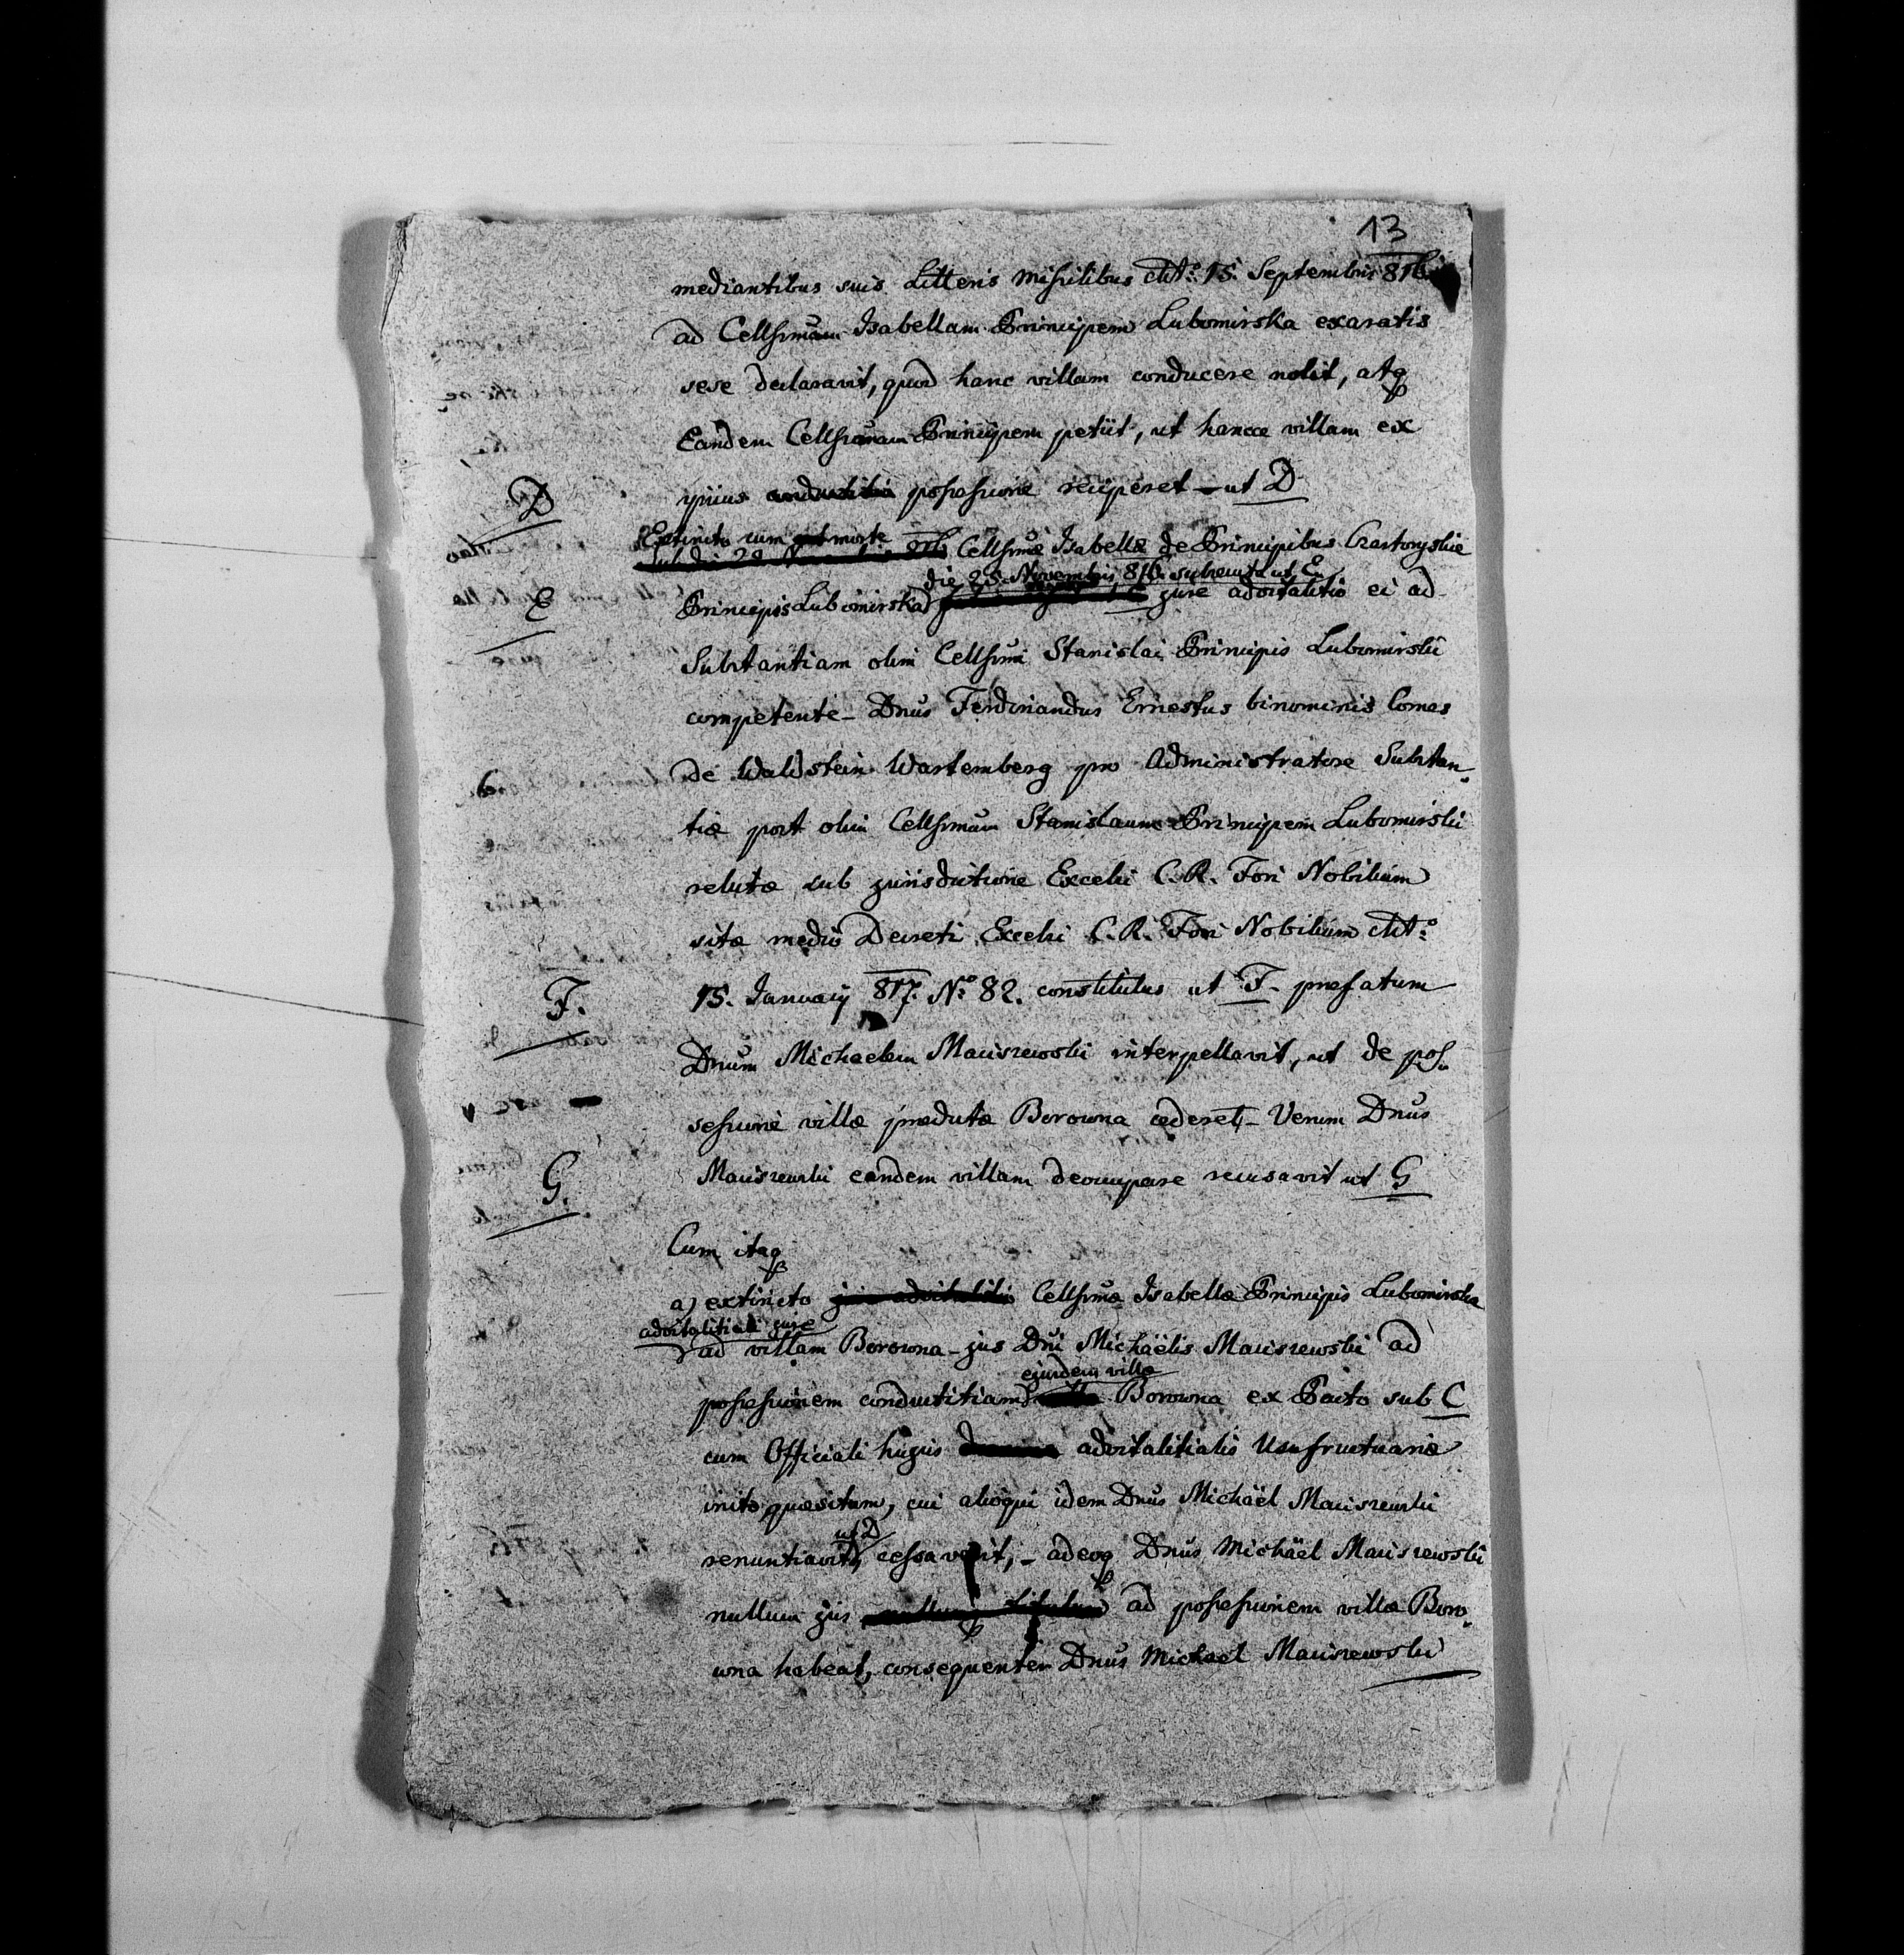 13
mediantibus suis Litteris missilibus ddtº 15. Septembris 816
ad Cellsimam Isabellam Principem Lubomirska exaratis
sese declaravit, quod hanc villam conducere nolit, atq
Eandem Cellsimam Principem petiit, ut hancce villam ex
ipsius possessione reciperet – ut D
D
Extincto cum morte Cellsimæ Isabellæ de Principibus Czartoryskie
die 25. Novembris 816. ut E.
E
Principis Lubomirska jure advitalitio ei ad
Substantiam olim Cellsimi Stanislai Principis Lubomirski
competente – Dnus Ferdinandus Ernestus binominis Comes
de Waldstein Wartemberg pro Administratore Substan-
tiæ post olim Cellsimum Stanislaum Principem Lubomirski
relictæ sub jurisdictione Excelsi C. R. Fori Nobilium
sitæ medio Decreti Excelsi C. R. Fori Nobilium ddtº
F.
15. January 817. Nº 82. constitutus ut F – præfatum
Dnum Michaelem Maciszewski interpellavit, ut de pos-
sessione villæ prædictæ Borowna cederet, – Verum Dnus
G.
Maciszewski eandem villam deoccupare recusavit ut G
Cum itaq
a) extincto Cellsimæ Isabellæ Principis Lubomirska
advitalitiali jure
ad villam Borowna – jus Dni Michaëlis Maciszewski ad
ejusdem villæ
possessionem conductitiam Borowna ex Pacto sub C
cum Officiali hujus advitalitialis Usufructuariæ
inito quæsitum, cui alioqui idem Dnus Michaël Maciszewski
ut D
renuntiavit, cessaverit, – adeoq Dnus Michäel Maciszewski
nullum jus ad possessionem villæ Boro-
wna habeat, consequenter Dnus Michael Maciszewski